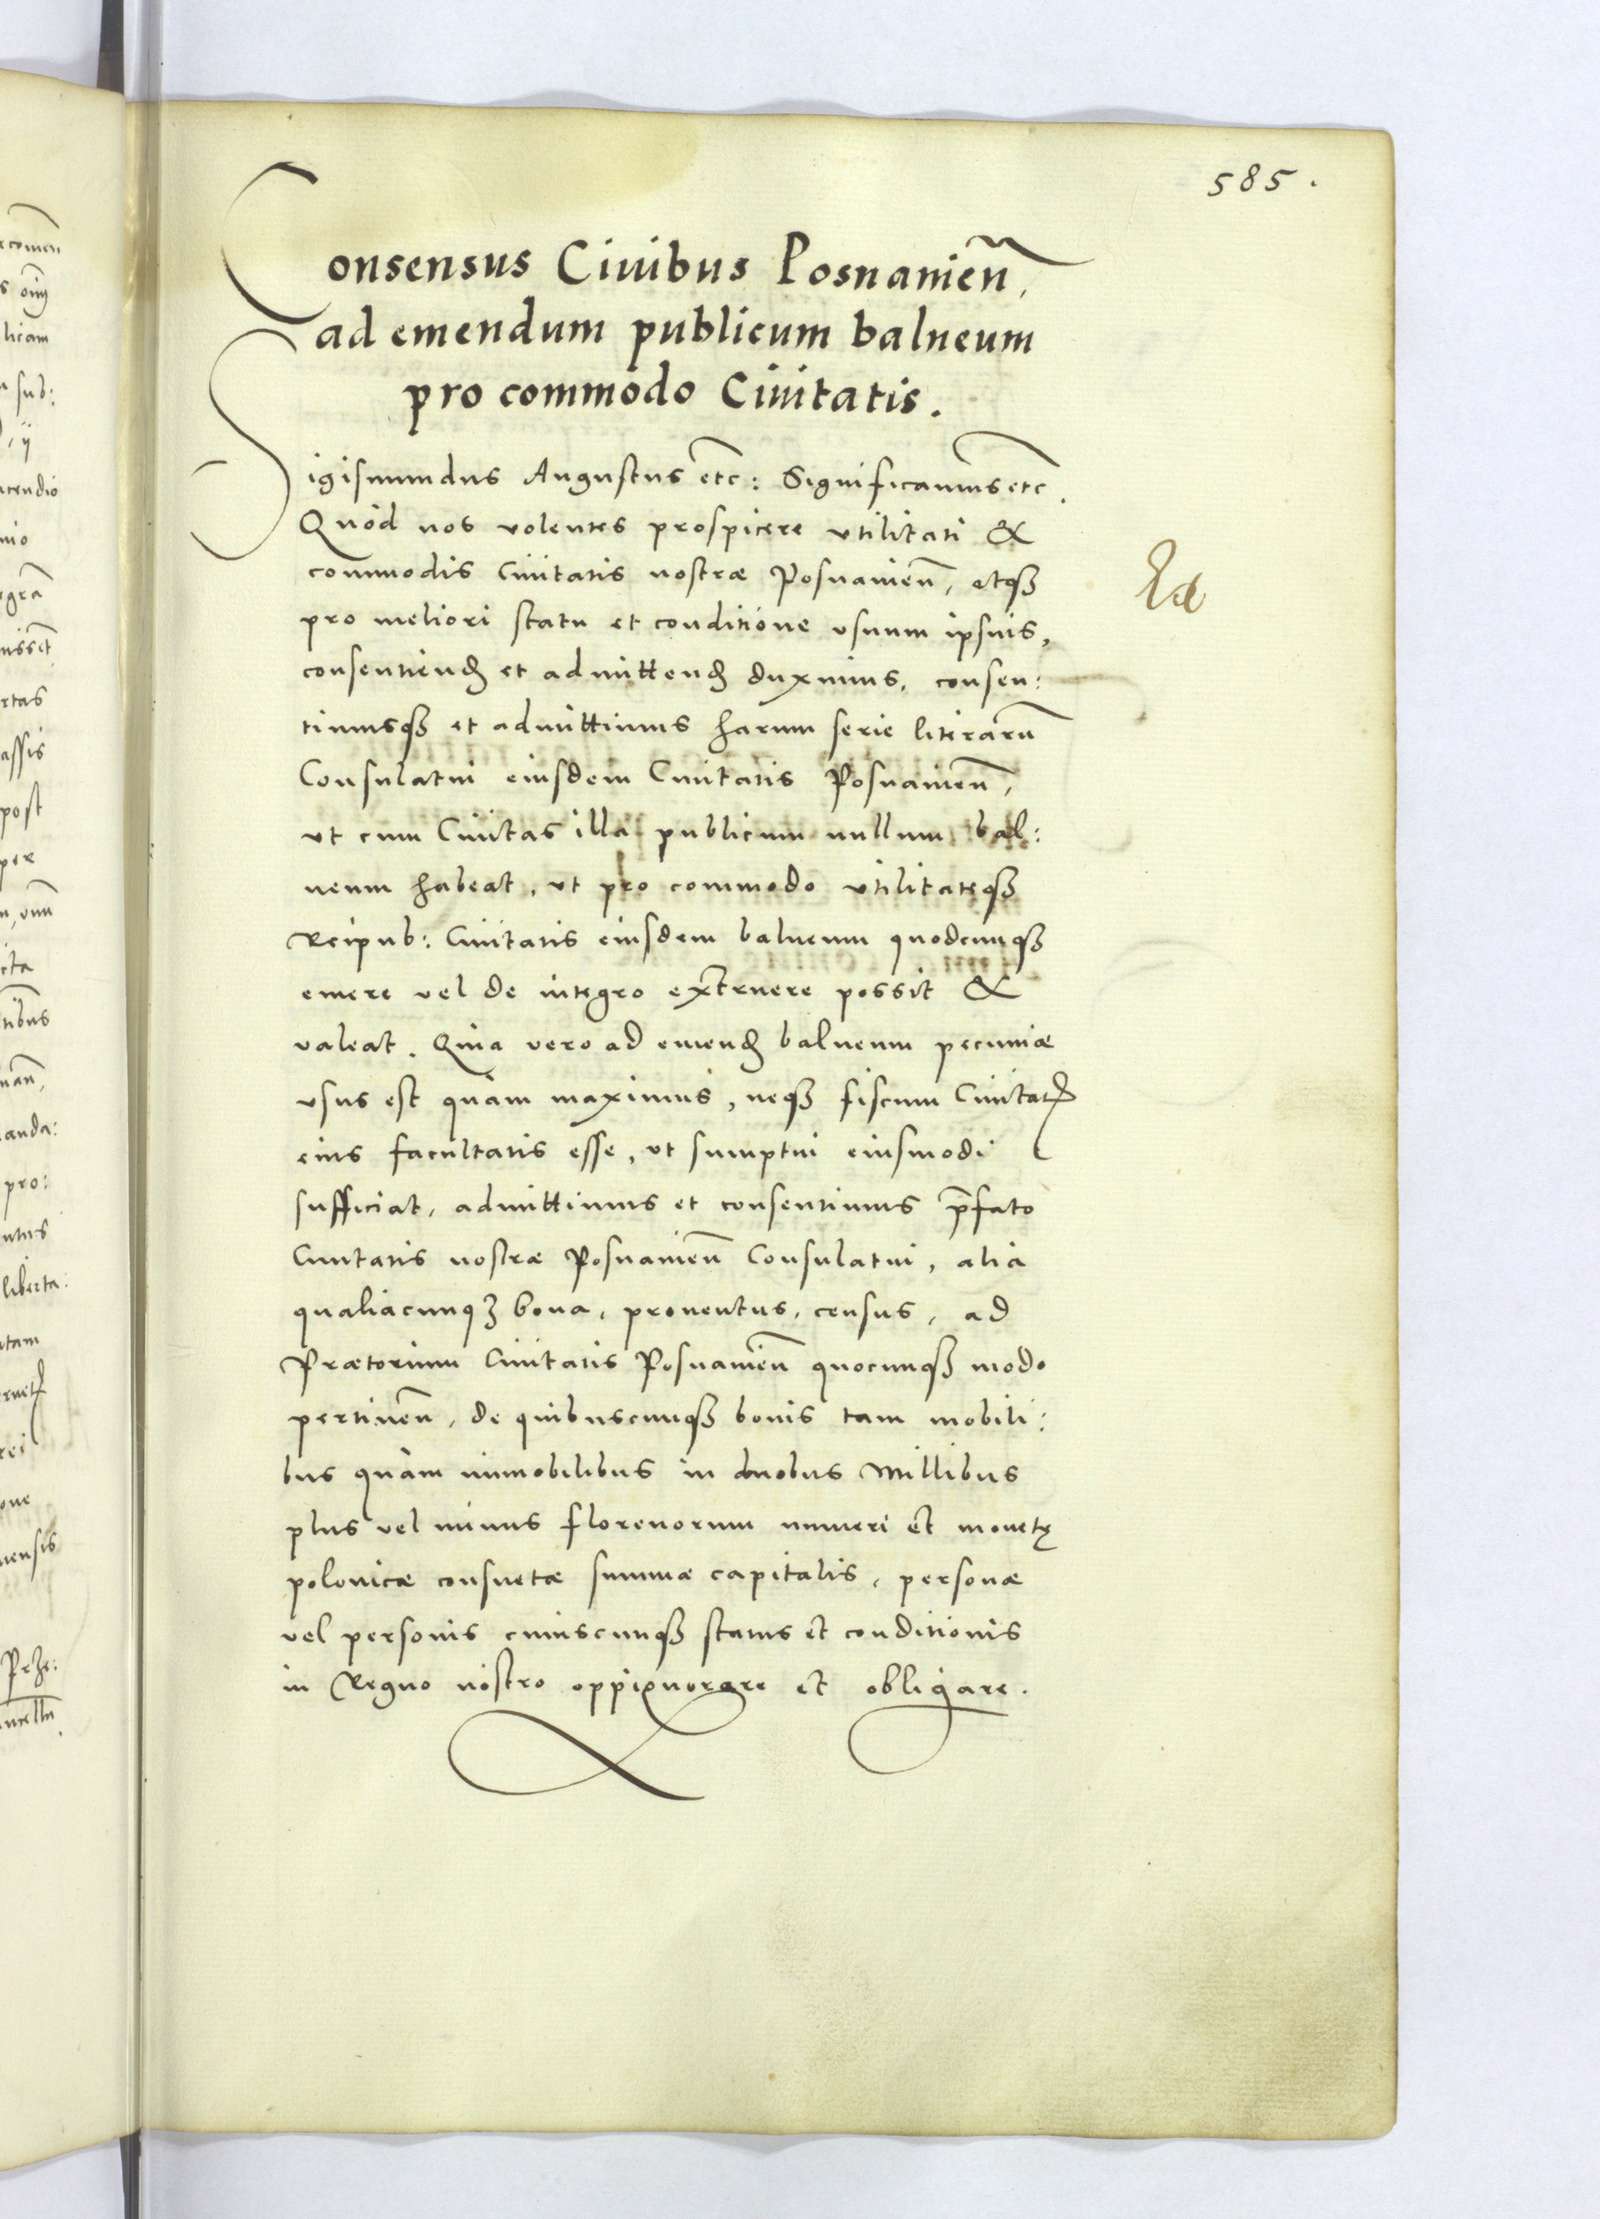 585.
Consensus Ciuibus Posnanień,
ad emendum publicum balneum
pro commodo Ciuitatis.
Sigismundus Augustus etc: Significamus etc.
Quòd nos volentes prospicere vtilitati &
commodis Ciuitatis nostræ Posnanień, etqȝ
pro meliori statu et conditione vsuum ipsius,
consentiend et admittend duximus, consen:
timusqȝ et admittimus harum serie literarū
Consulatui eiusdem Ciuitatis Posnanień,
vt cum Ciuitas illa publicum nullum bal:
neum habeat, vt pro commodo vtilitateqȝ
Reipub: Ciuitatis eiusdem balneum quodcunqȝ
emere vel de integro extruere possit &
valeat. Quia vero ad emend balneum pecuniæ
vsus est quàm maximus, neqȝ fiscum Ciuitatis
eius facultatis esse, vt sumptui eiusmodi
sufficiat, admittimus et consentimus p̄fato
Ciuitatis nostræ Posnanień Consulatui, alia
qualiacunqȝ bona, prouentus, census, ad
Prætorium Ciuitatis Posnanień quocunqȝ modo
pertineń, de quibuscunqȝ bonis tam mobili:
bus quàm immobilibus in duobus Millibus
plus vel minus florenorum numeri et monetę
polonicæ consuetæ summæ capitalis, personæ
vel personis cuiuscunqȝ status et conditionis
in Regno nostro oppignorare et obligare.